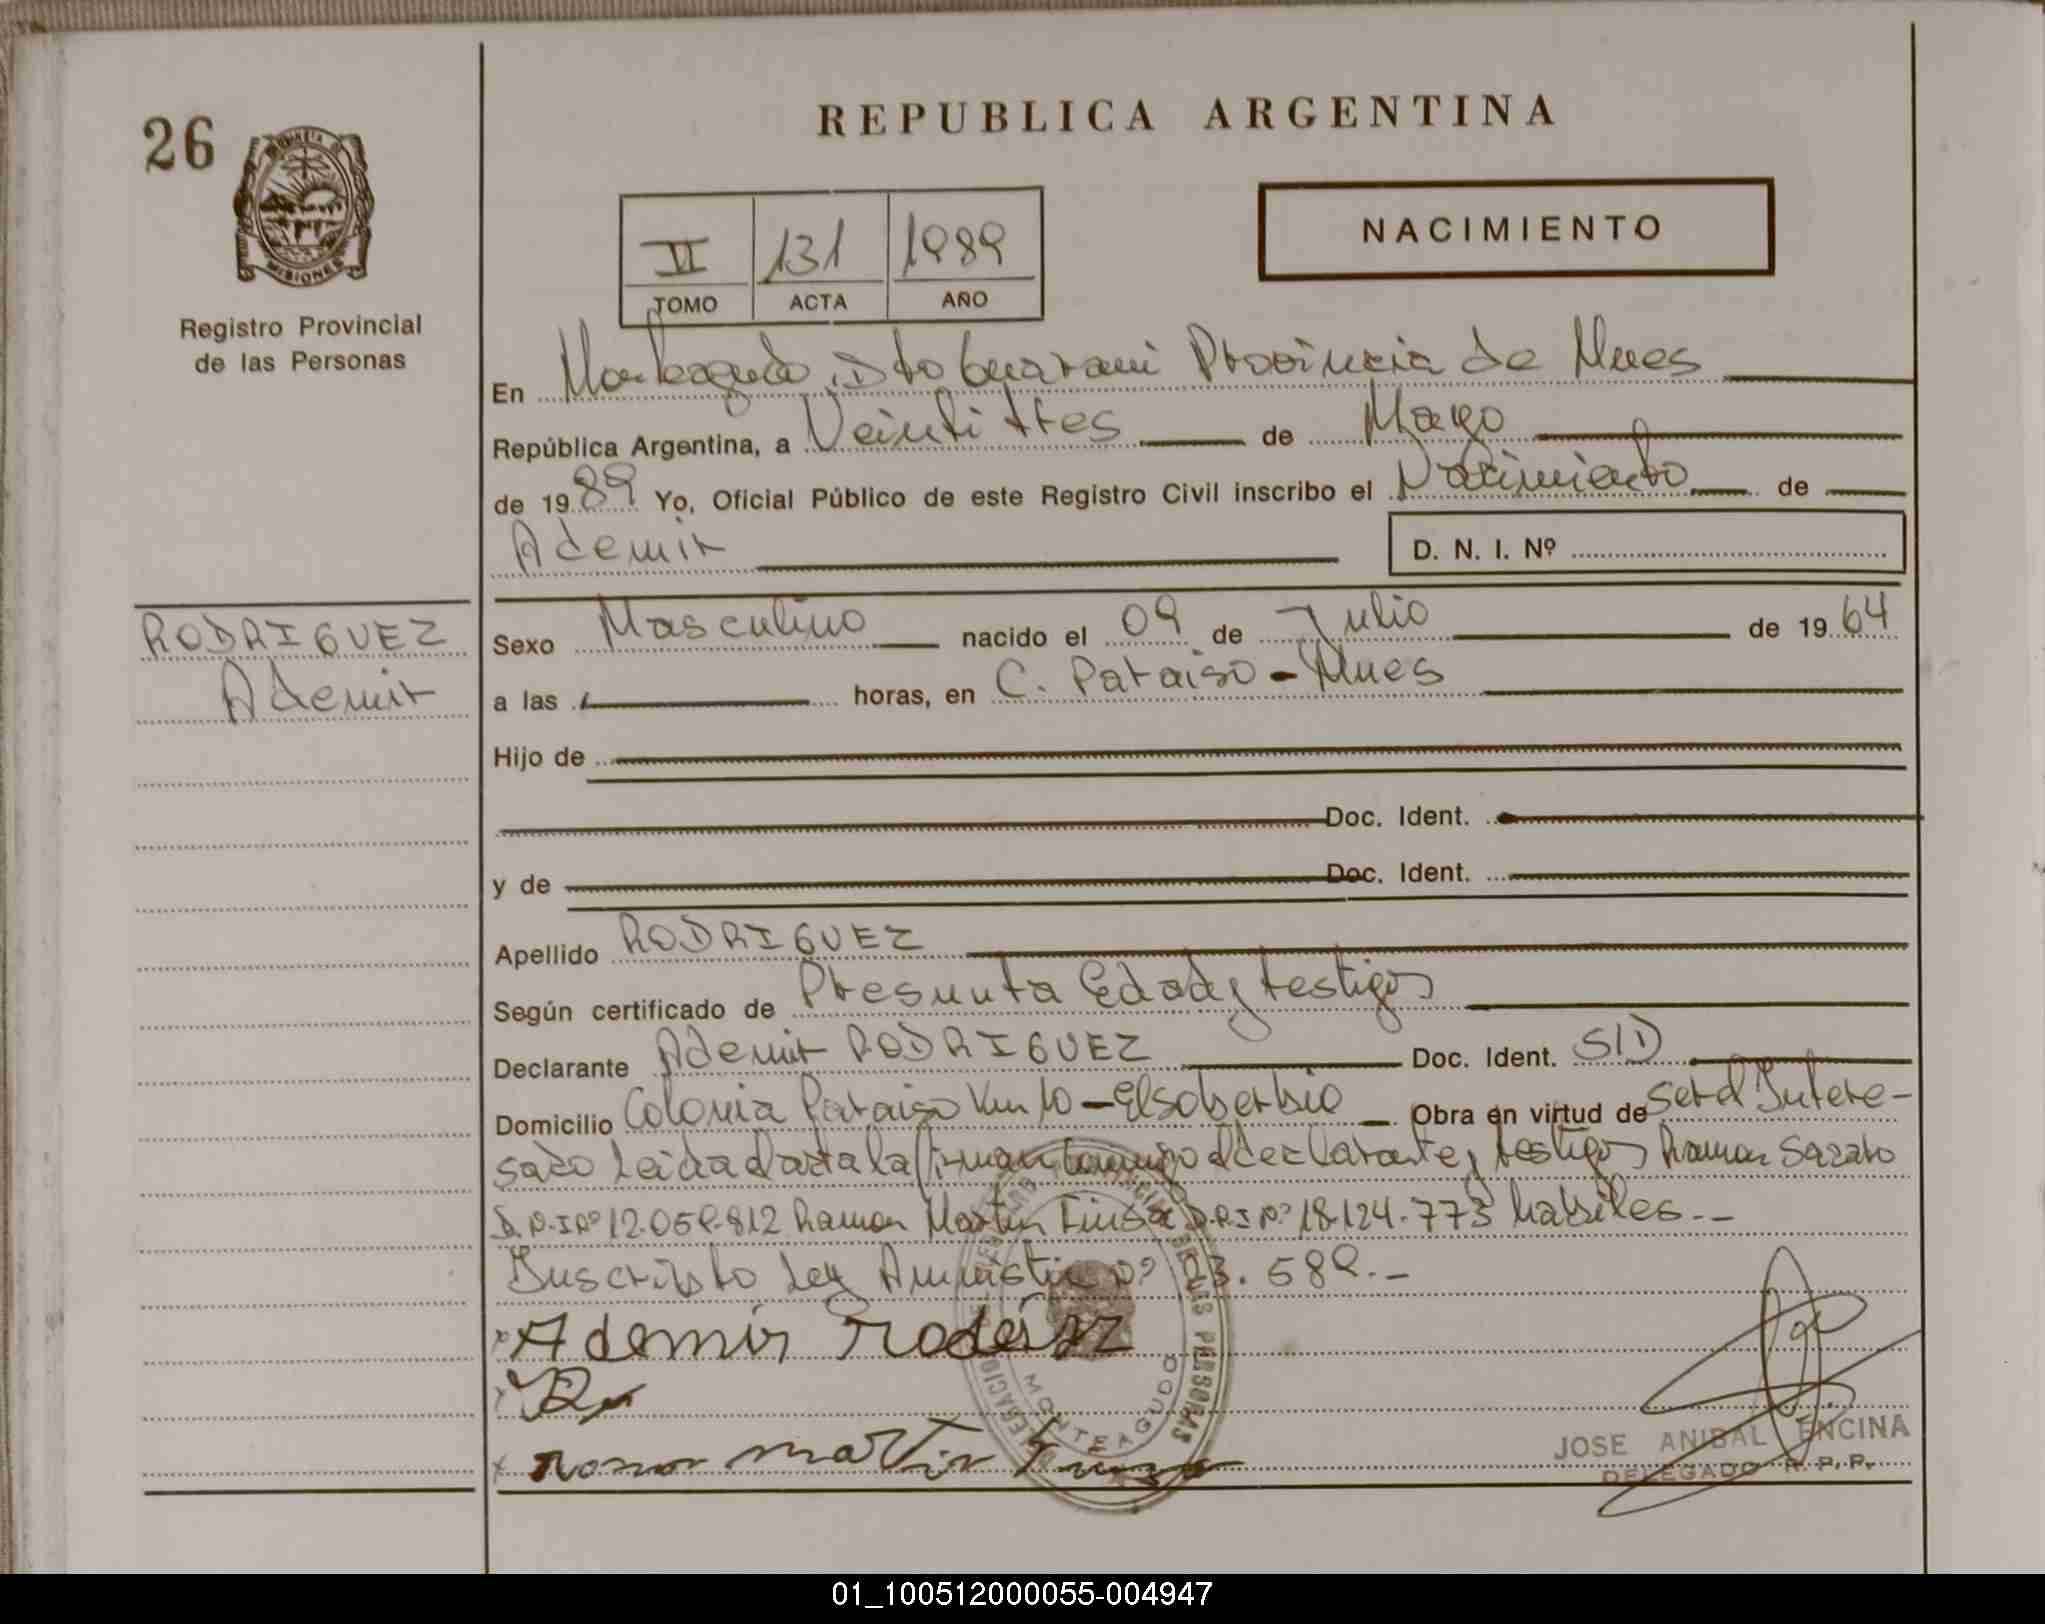 REPUBLICA ARGENTINA
26
PROVINCIA DE
MISIONES
Registro Provincial
de las Personas
VI 131 1989
TOMO ACTA AÑO
NACIMIENTO
En Monteagudo, Dto Guarani Provincia de Mnes
República Argentina, a Veintitres de Mayo
de 1989 Yo, Oficial Público de este Registro Civil inscribo el Nacimiento de
Ademir D. N. I. Nº
RODRIGUEZ
Ademir
Sexo Masculino nacido el 09 de Julio de 1964
a las horas, en C. Paraiso - Mnes
Hijo de
Doc. Ident.
y de Doc. Ident.
Apellido RODRIGUEZ
Según certificado de Presunta Edad y testigos
Declarante Ademir RODRIGUEZ Doc. Ident. S/D
Domicilio Colonia Paraiso Km 10 - El soberbio Obra en virtud de ser el Intere-
sado Leida el acta la firman conmigo el declarante y testigos Ramon
D.N.I Nº 12.059.812 Ramon Martin D.N.I Nº 18.124.773 habiles.-
Inscripto Ley Amnistia Nº 23.589.-
Ademir
ramon martin
MONTEAGUDO
DE LAS PERSONAS
JOSE ANIBAL ENCINA
DELEGADO R. P. P.
01_100512000055-004947